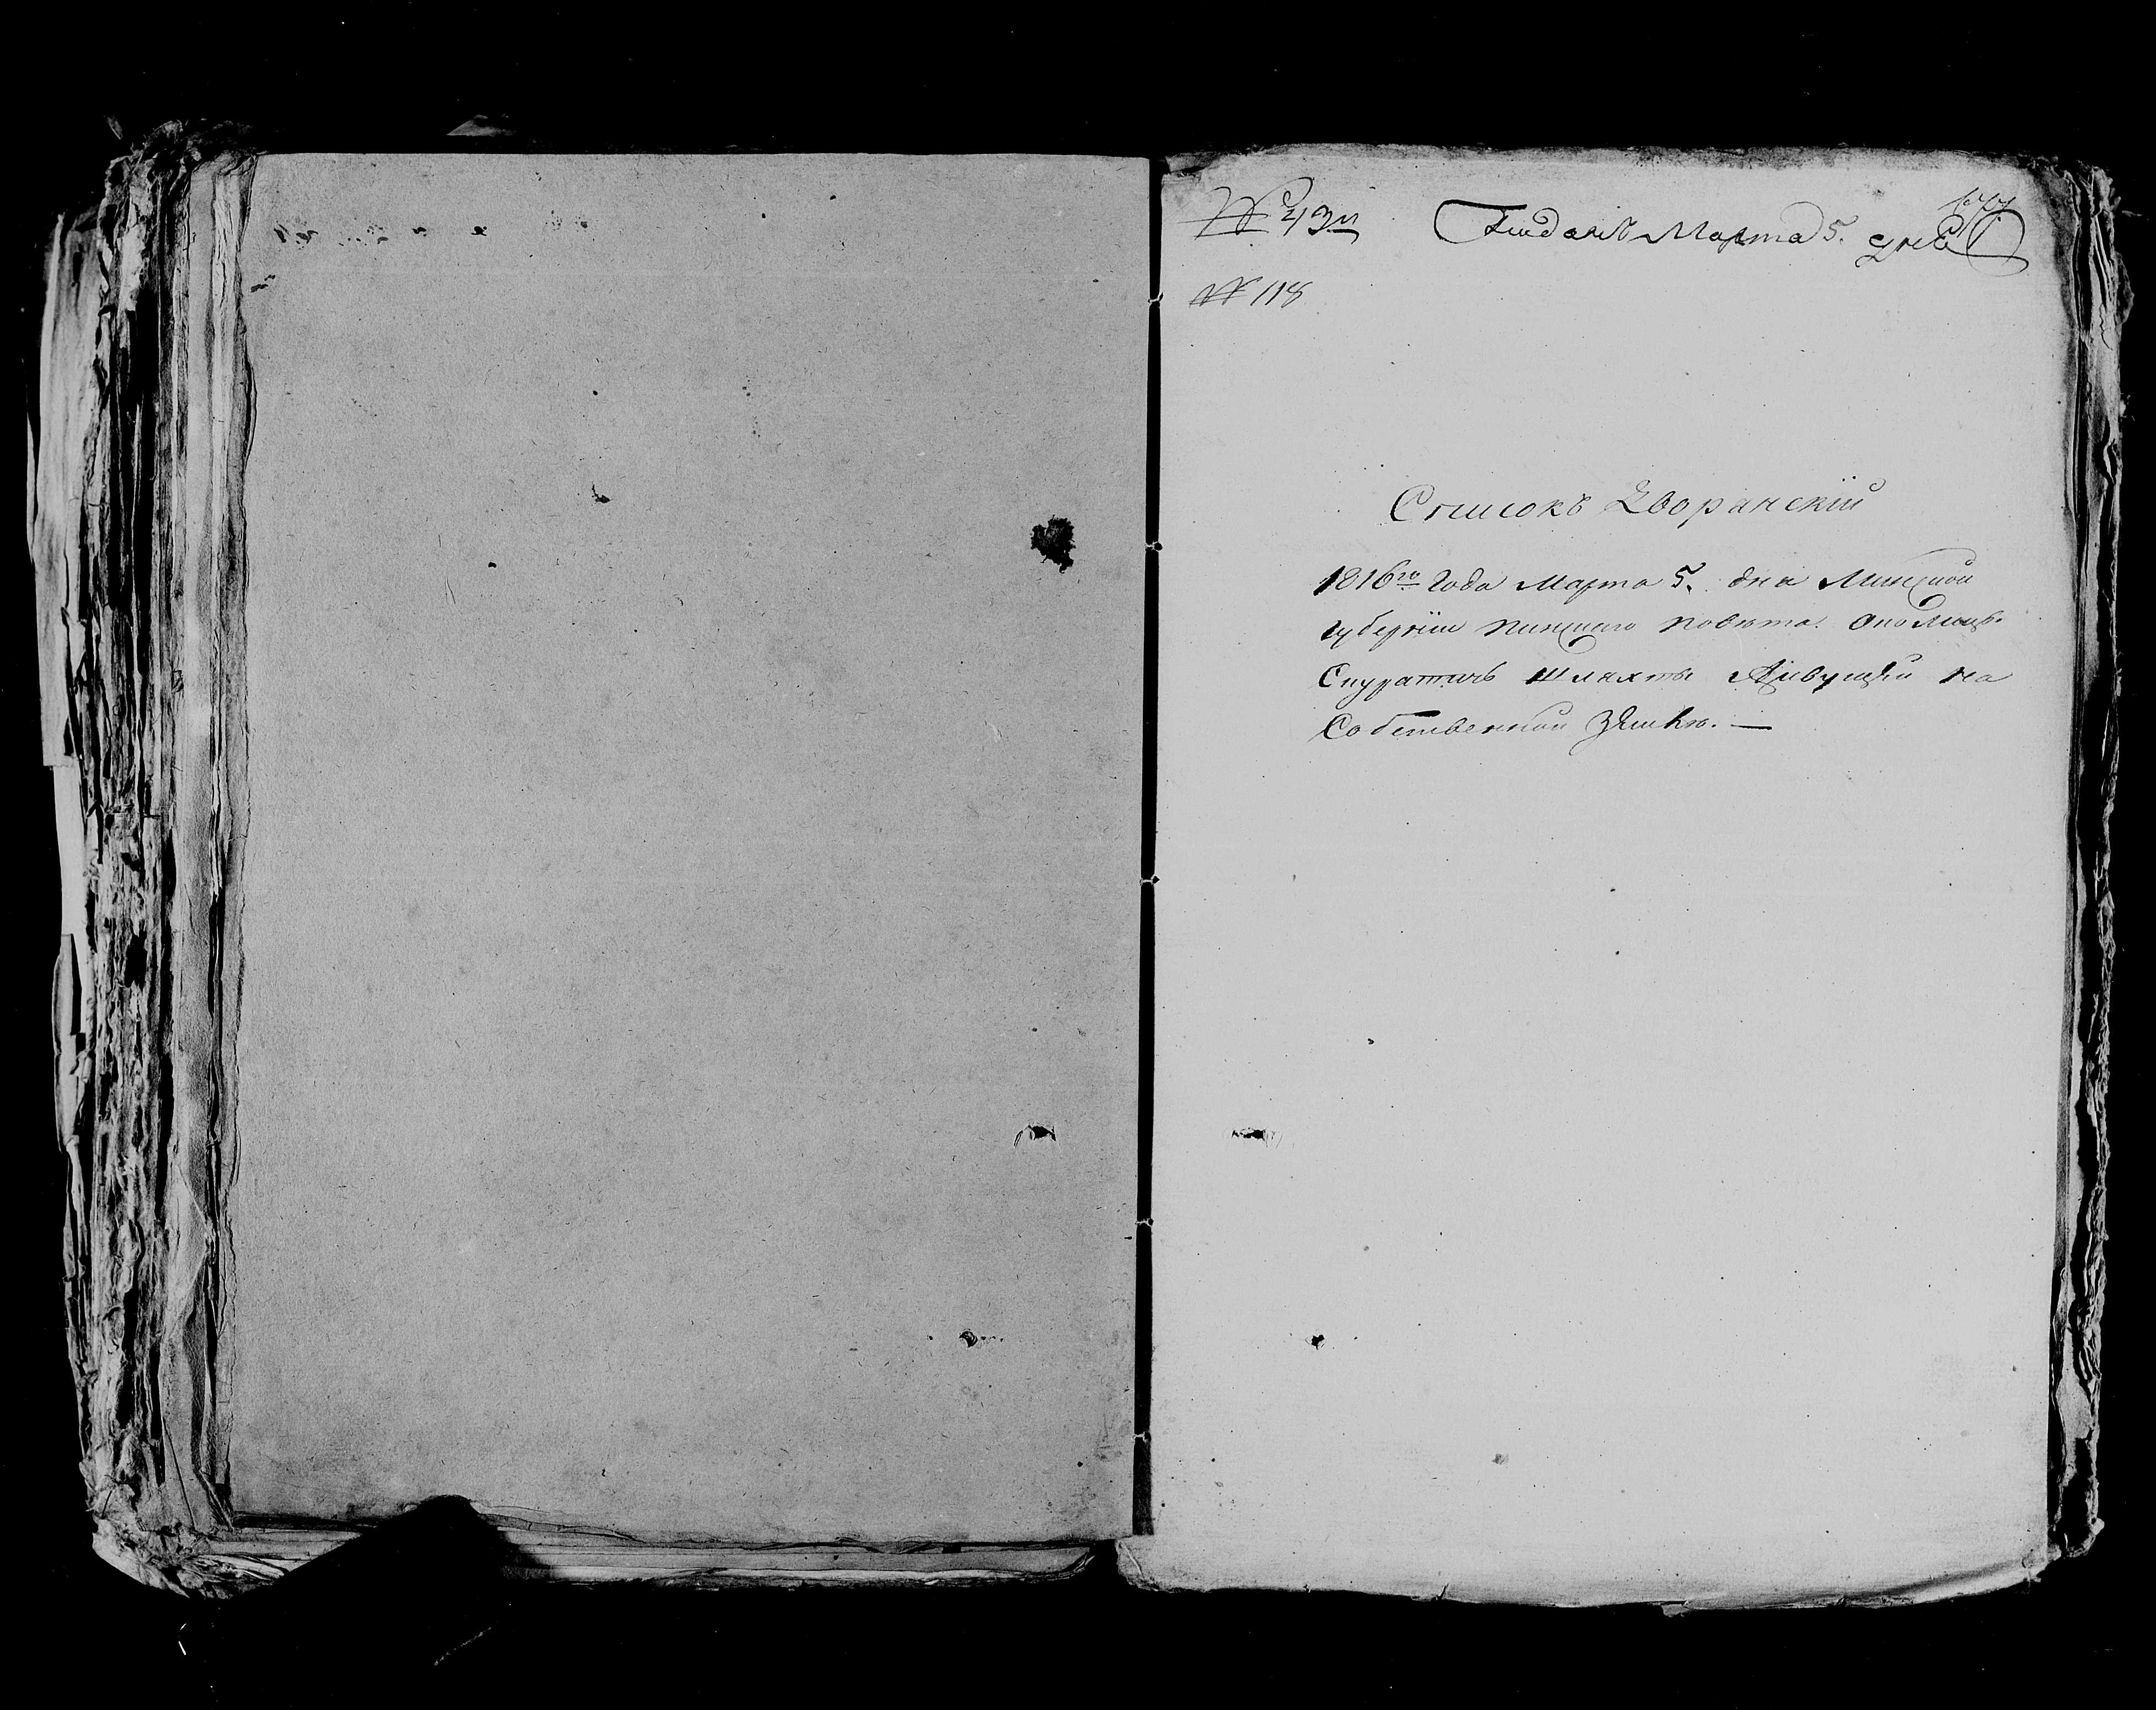 № 43й Поданъ Марта 5. дня
№ 118
Списокъ Дворянскій
1816го Года Марта 5. дня Минской
Губерніи Пинскаго Повета. Околицы
Скуратичь Шляхты Живущей на
Собственной Земле. —